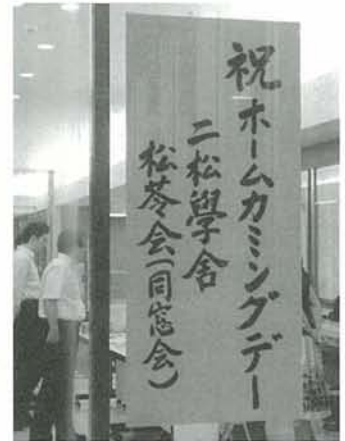 祝ホームカミングデー
二松學舎
松苓会(同窓会)